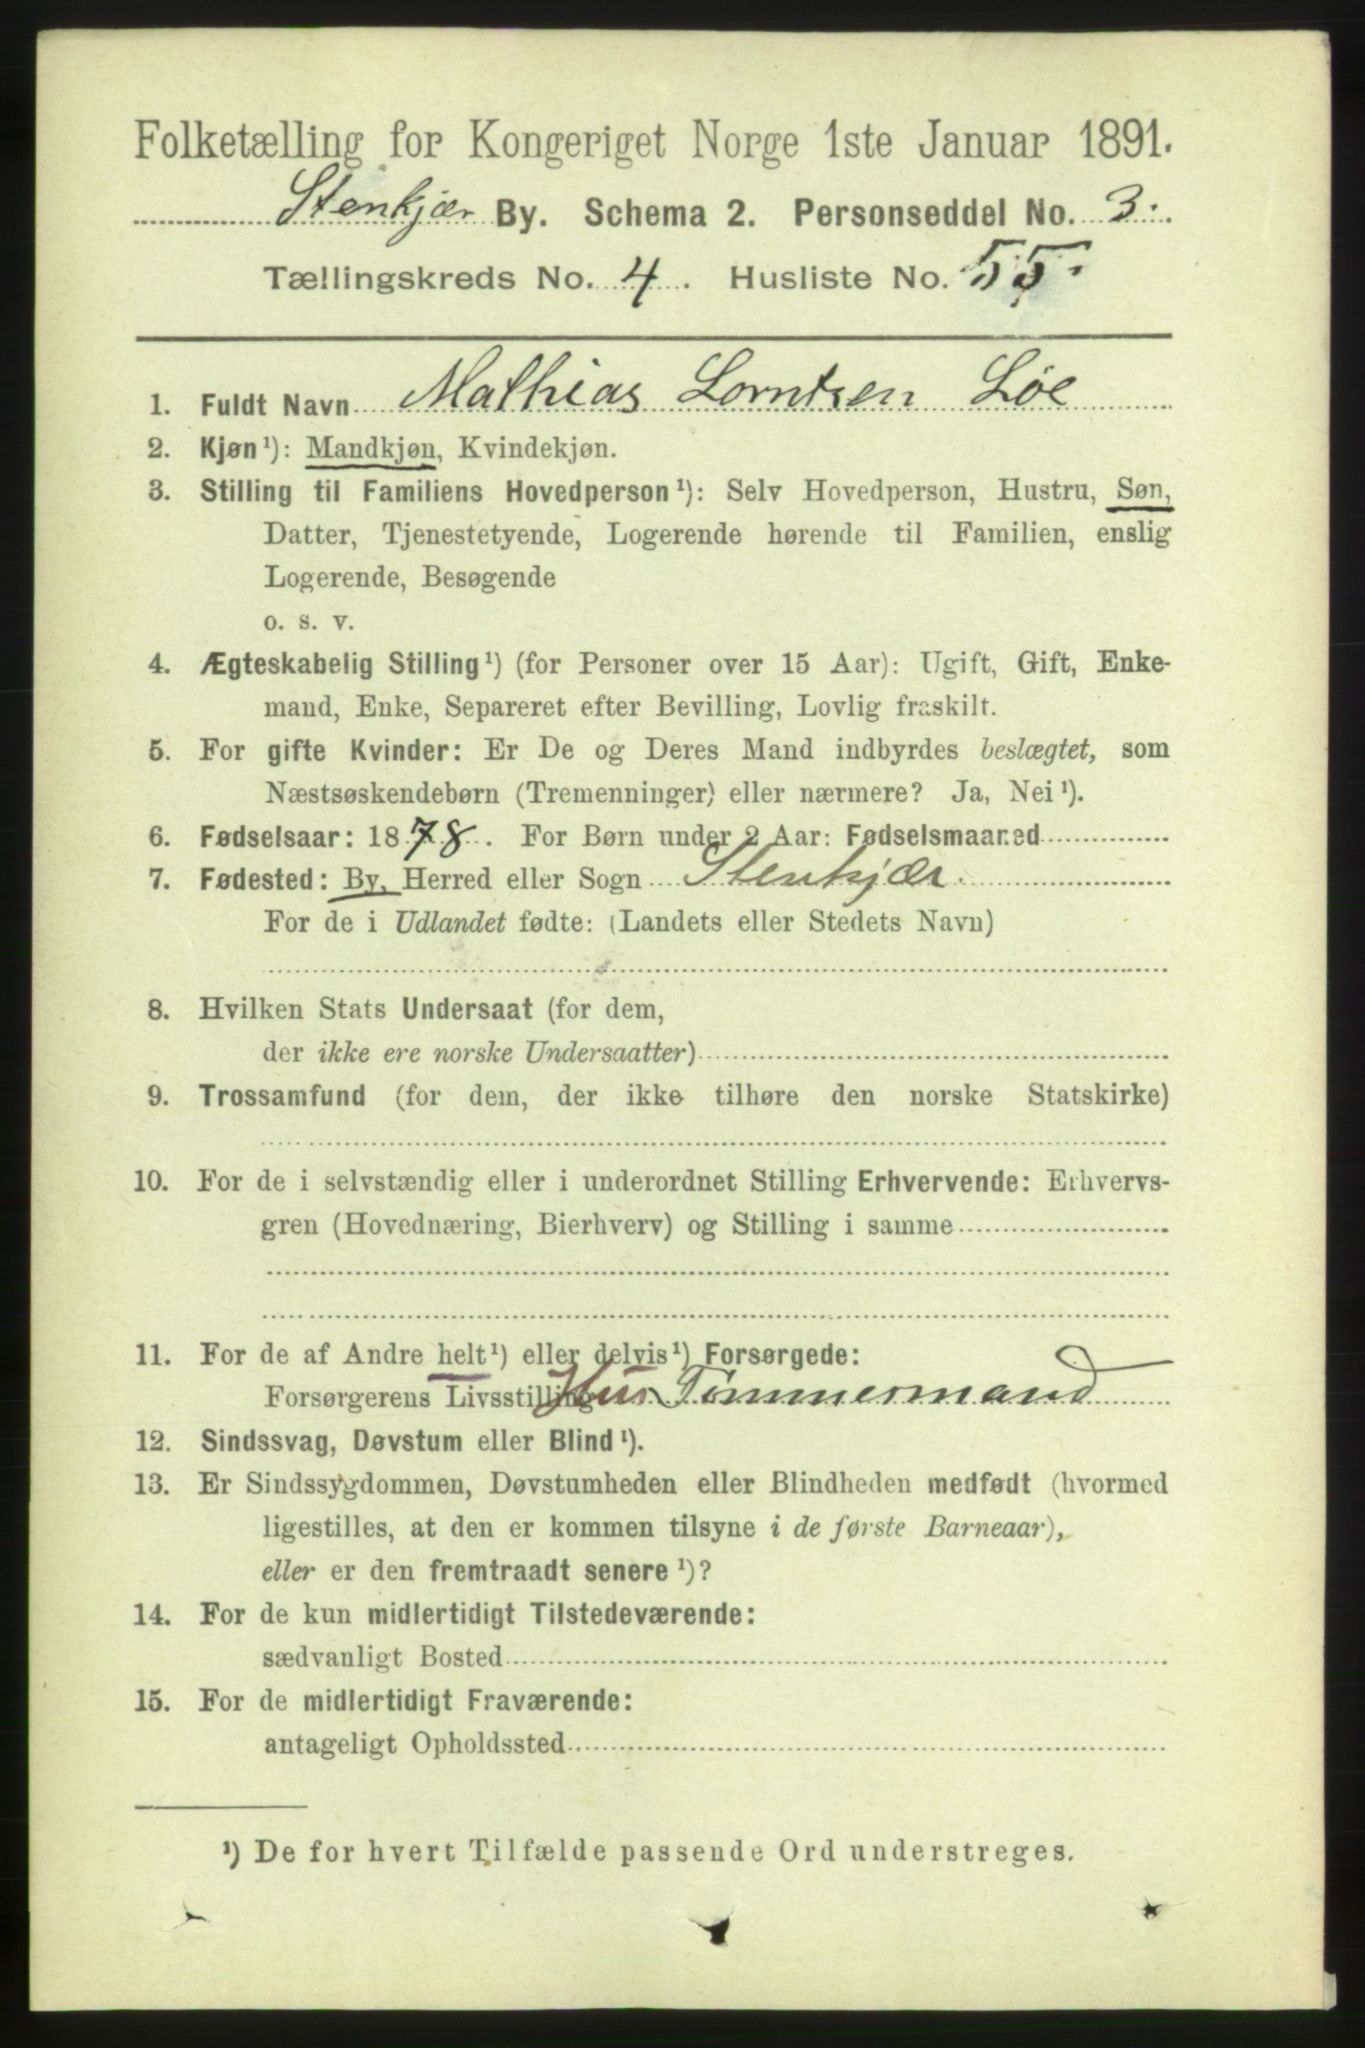 Folketælling for Kongeriget Norge 1ste Januar 1891.
Stenkjær By. Schema 2. Personseddel No. 3.
Tællingskreds No. 4. Husliste No. 55.
1. Fuldt Navn Mathias Lorntsen Løe
2. Kjøn¹): Mandkjøn, Kvindekjøn.
3. Stilling til Familiens Hovedperson¹): Selv Hovedperson, Hustru, Søn,
Datter, Tjenestetyende, Logerende hørende til Familien, enslig
Logerende, Besøgende
o. s. v.
4. Ægteskabelig Stilling¹) (for Personer over 15 Aar): Ugift, Gift, Enke-
mand, Enke, Separeret efter Bevilling, Lovlig fraskilt.
5. For gifte Kvinder: Er De og Deres Mand indbyrdes beslægtet, som
Næstsøskendebørn (Tremenninger) eller nærmere? Ja, Nei¹).
6. Fødselsaar: 1878. For Børn under 2 Aar: Fødselsmaaned
7. Fødested: By, Herred eller Sogn Stenkjær.
For de i Udlandet fødte: (Landets eller Stedets Navn)
8. Hvilken Stats Undersaat (for dem,
der ikke ere norske Undersaatter)
9. Trossamfund (for dem, der ikke tilhøre den norske Statskirke)
10. For de i selvstændig eller i underordnet Stilling Erhvervende: Erhvervs-
gren (Hovednæring, Bierhverv) og Stilling i samme
11. For de af Andre helt¹) eller delvis¹) Forsørgede:
Forsørgerens Livsstilling Hus Tømmermand
12. Sindssvag, Døvstum eller Blind¹).
13. Er Sindssygdommen, Døvstumheden eller Blindheden medfødt (hvormed
ligestilles, at den er kommen tilsyne i de første Barneaar),
eller er den fremtraadt senere¹)?
14. For de kun midlertidigt Tilstedeværende:
sædvanligt Bosted
15. For de midlertidigt Fraværende:
antageligt Opholdssted
¹) De for hvert Tilfælde passende Ord understreges.